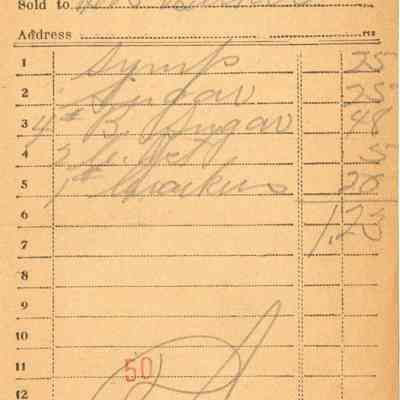 Sold to
Address
1 Syrup 25
2 Sugar 25
3 4# B. Sugar 48
4 5
5 1# Crackers 20
6 1.23
7
8
9
10
11 50
12